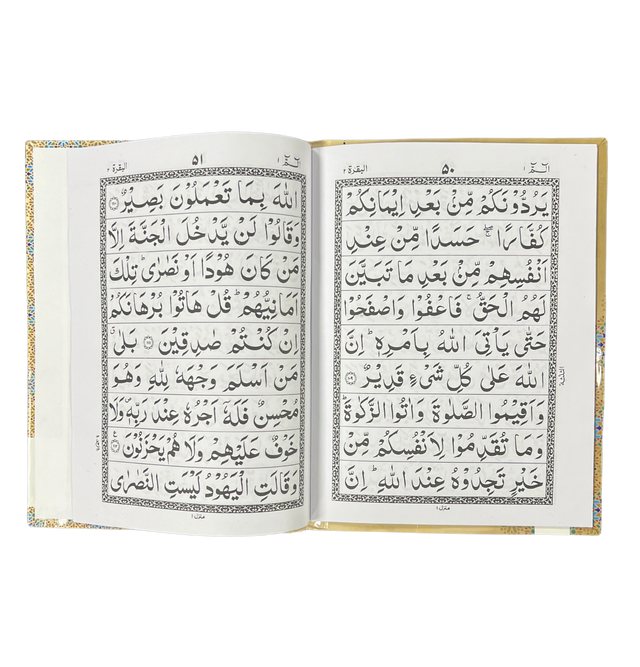 الٓمّٓ ١
٥٠
البقرة ٢
يَرُدُّوْنَكُمْ مِّنْۢ بَعْدِ اِيْمَانِكُمْ
كُفَّارًا ۖۚ حَسَدًا مِّنْ عِنْدِ
اَنْفُسِهِمْ مِّنْۢ بَعْدِ مَا تَبَيَّنَ
لَهُمُ الْحَقُّ ۚ فَاعْفُوْا وَاصْفَحُوْا
حَتّٰى يَاْتِيَ اللّٰهُ بِاَمْرِهٖ ؕ اِنَّ
اللّٰهَ عَلٰى كُلِّ شَيْءٍ قَدِيْرٌ ﴿١٠٩﴾
وَاَقِيْمُوا الصَّلٰوةَ وَاٰتُوا الزَّكٰوةَ ؕ
وَمَا تُقَدِّمُوْا لِاَنْفُسِكُمْ مِّنْ
خَيْرٍ تَجِدُوْهُ عِنْدَ اللّٰهِ ؕ اِنَّ
منزل ١
الٓمّٓ ١
٥١
البقرة ٢
اللّٰهَ بِمَا تَعْمَلُوْنَ بَصِيْرٌ ﴿١١٠﴾
وَقَالُوْا لَنْ يَّدْخُلَ الْجَنَّةَ اِلَّا
مَنْ كَانَ هُوْدًا اَوْ نَصٰرٰى ؕ تِلْكَ
اَمَانِيُّهُمْ ؕ قُلْ هَاتُوْا بُرْهَانَكُمْ
اِنْ كُنْتُمْ صٰدِقِيْنَ ﴿١١١﴾ بَلٰى ۗ
مَنْ اَسْلَمَ وَجْهَهٗ لِلّٰهِ وَهُوَ
مُحْسِنٌ فَلَهٗۤ اَجْرُهٗ عِنْدَ رَبِّهٖ ۪ وَلَا
خَوْفٌ عَلَيْهِمْ وَلَا هُمْ يَحْزَنُوْنَ ﴿١١٢﴾
وَقَالَتِ الْيَهُوْدُ لَيْسَتِ النَّصٰرٰى
منزل ١